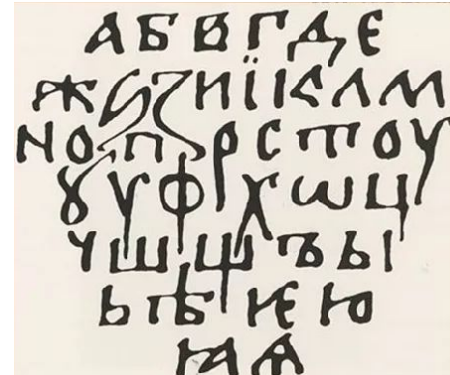 А Б В Г Д Є
Ж Ѕ З И Ї І К Л М
N О П Р С Т ОУ
Ꙋ У Ф Х Ѡ Ц
Ч Ш Щ Ъ ЪІ
Ь Ѣ Ѥ Ю
Ꙗ Ѧ